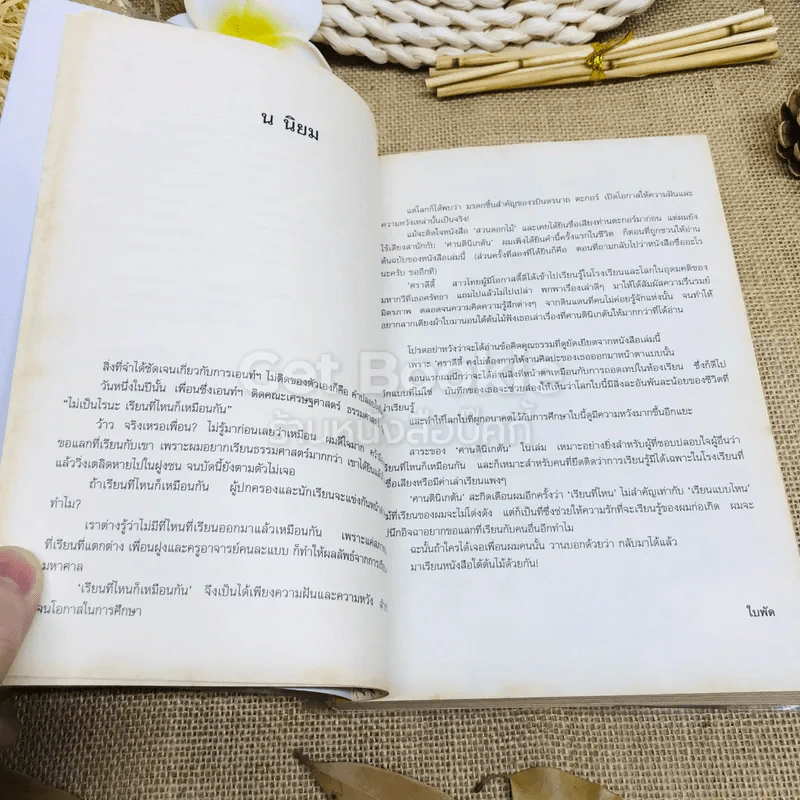 น นิยม
สิ่งที่จำได้ชัดเจนเกี่ยวกับการเอนท์ฯ ไม่ติดของตัวเองก็คือ คำปลอบใจ
วันหนึ่งในปีนั้น เพื่อนซึ่งเอนท์ฯ ติดคณะเศรษฐศาสตร์ ธรรมศาสตร์
“ไม่เป็นไรนะ เรียนที่ไหนก็เหมือนกัน”
ว้าว จริงเหรอเพื่อน? ไม่รู้มาก่อนเลยว่าเหมือน ผมดีใจมาก
ขอแลกที่เรียนกับเขา เพราะผมอยากเรียนธรรมศาสตร์มากกว่า เขาได้ยินแล้ว
แล้ววิ่งเตลิดหายไปในฝูงชน จนบัดนี้ยังตามตัวไม่เจอ
ถ้าเรียนที่ไหนก็เหมือนกัน ผู้ปกครองและนักเรียนจะแข่งกันหน้าดำ
ทำไม?
เราต่างรู้ว่าไม่มีที่ไหนที่เรียนออกมาแล้วเหมือนกัน เพราะแค่
ที่เรียนที่แตกต่าง เพื่อนฝูงและครูอาจารย์คนละแบบ ก็ทำให้ผลลัพธ์จากการเรียน
มหาศาล
‘เรียนที่ไหนก็เหมือนกัน’ จึงเป็นได้เพียงความฝันและความหวัง
จนโอกาสในการศึกษา
แต่โลกก็ได้พบว่า มรดกชิ้นสำคัญของรบินดรนาถ ตะกอร์ เปิดโอกาสให้ความฝันและ
ความหวังเหล่านั้นเป็นจริง!
แม้จะติดใจหนังสือ ‘สวนดอกไม้’ และเคยได้ยินชื่อเสียงท่านตะกอร์มาก่อน แต่ผมยัง
ไร้เดียงสานักกับ ‘ศานตินิเกตัน’ ผมเพิ่งได้ยินคำนี้ครั้งแรกในชีวิต ก็ตอนที่ถูกชวนให้อ่าน
ต้นฉบับของหนังสือเล่มนี้ (ส่วนครั้งที่สองที่ได้ยินก็คือ ตอนที่ถามกลับไปว่าหนังสือชื่ออะไร
นะครับ ขออีกที)
‘ศราสีตี้ สาวไทยผู้มีโอกาสดีได้เข้าไปเรียนรู้ในโรงเรียนและโลกในอุดมคติของ
มหากวีที่เธอศรัทธา แถมไปแล้วไม่ไปเปล่า พกพาเรื่องเล่าดีๆ มาให้ได้สัมผัสความรื่นรมย์
มิตรภาพ ตลอดจนความคิดความรู้สึกต่างๆ จากดินแดนที่คนไม่ค่อยรู้จักแห่งนั้น จนทำให้
อยากลากเตียงผ้าใบมานอนใต้ต้นไม้ฟังเธอเล่าเรื่องที่ศานตินิเกตันให้มากกว่าที่ได้อ่าน
โปรดอย่าหวังว่าจะได้อ่านข้อคิดคุณธรรมที่ดูยัดเยียดจากหนังสือเล่มนี้
เพราะ ‘ศราสีตี้’ คงไม่ต้องการให้งานศิลปะของเธอออกมาหน้าตาแบบนั้น
ตอนแรกผมนึกว่าจะได้อ่านสิ่งที่หน้าตาเหมือนกับการถอดเทปในห้องเรียน ซึ่งก็ดีไป
แบบที่ไม่ใช่ บันทึกของเธอจะช่วยส่องให้เห็นว่าโลกใบนี้มีสิ่งละอันพันละน้อยของชีวิตที่
เรียนรู้
และทำให้โลกใบที่ผูกอนาคตไว้กับการศึกษาใบนี้ดูมีความหวังมากขึ้นอีกแยะ
สาระของ ‘ศานตินิเกตัน’ ในเล่ม เหมาะอย่างยิ่งสำหรับผู้ที่ชอบปลอบใจผู้อื่นว่า
เรียนที่ไหนก็เหมือนกัน และก็เหมาะสำหรับคนที่ยึดติดว่าการเรียนรู้มีได้เฉพาะในโรงเรียนที่
ชื่อเสียงหรือมีค่าเล่าเรียนแพงๆ
‘ศานตินิเกตัน’ สะกิดเตือนผมอีกครั้งว่า ‘เรียนที่ไหน’ ไม่สำคัญเท่ากับ ‘เรียนแบบไหน’
ที่เรียนของผมจะไม่โด่งดัง แต่ก็เป็นที่ซึ่งช่วยให้ความรักที่จะเรียนรู้ของผมก่อเกิด ผมจะ
นึกอิจฉาอยากขอแลกที่เรียนกับคนอื่นอีกทำไม
ฉะนั้นถ้าใครได้เจอเพื่อนผมคนนั้น วานบอกด้วยว่า กลับมาได้แล้ว
มาเรียนหนังสือใต้ต้นไม้ด้วยกัน!
ใบพัด
Get Booky
ร้านหนังสือบุ๊คกี้